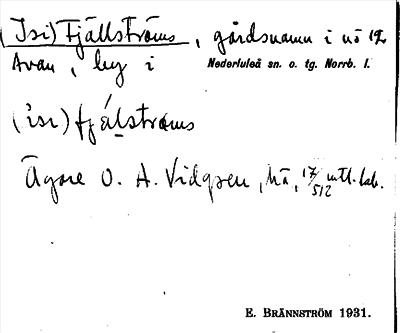 (Isi) Fjällströms, gårdsnamn i nö 12
Avan, by i Nederluleå sn. o. tg. Norrb. l.
(isi) fjälströms
Ägare O. A. Vidgren, 17/512 mtl.
E. BRÄNNSTRÖM 1931.